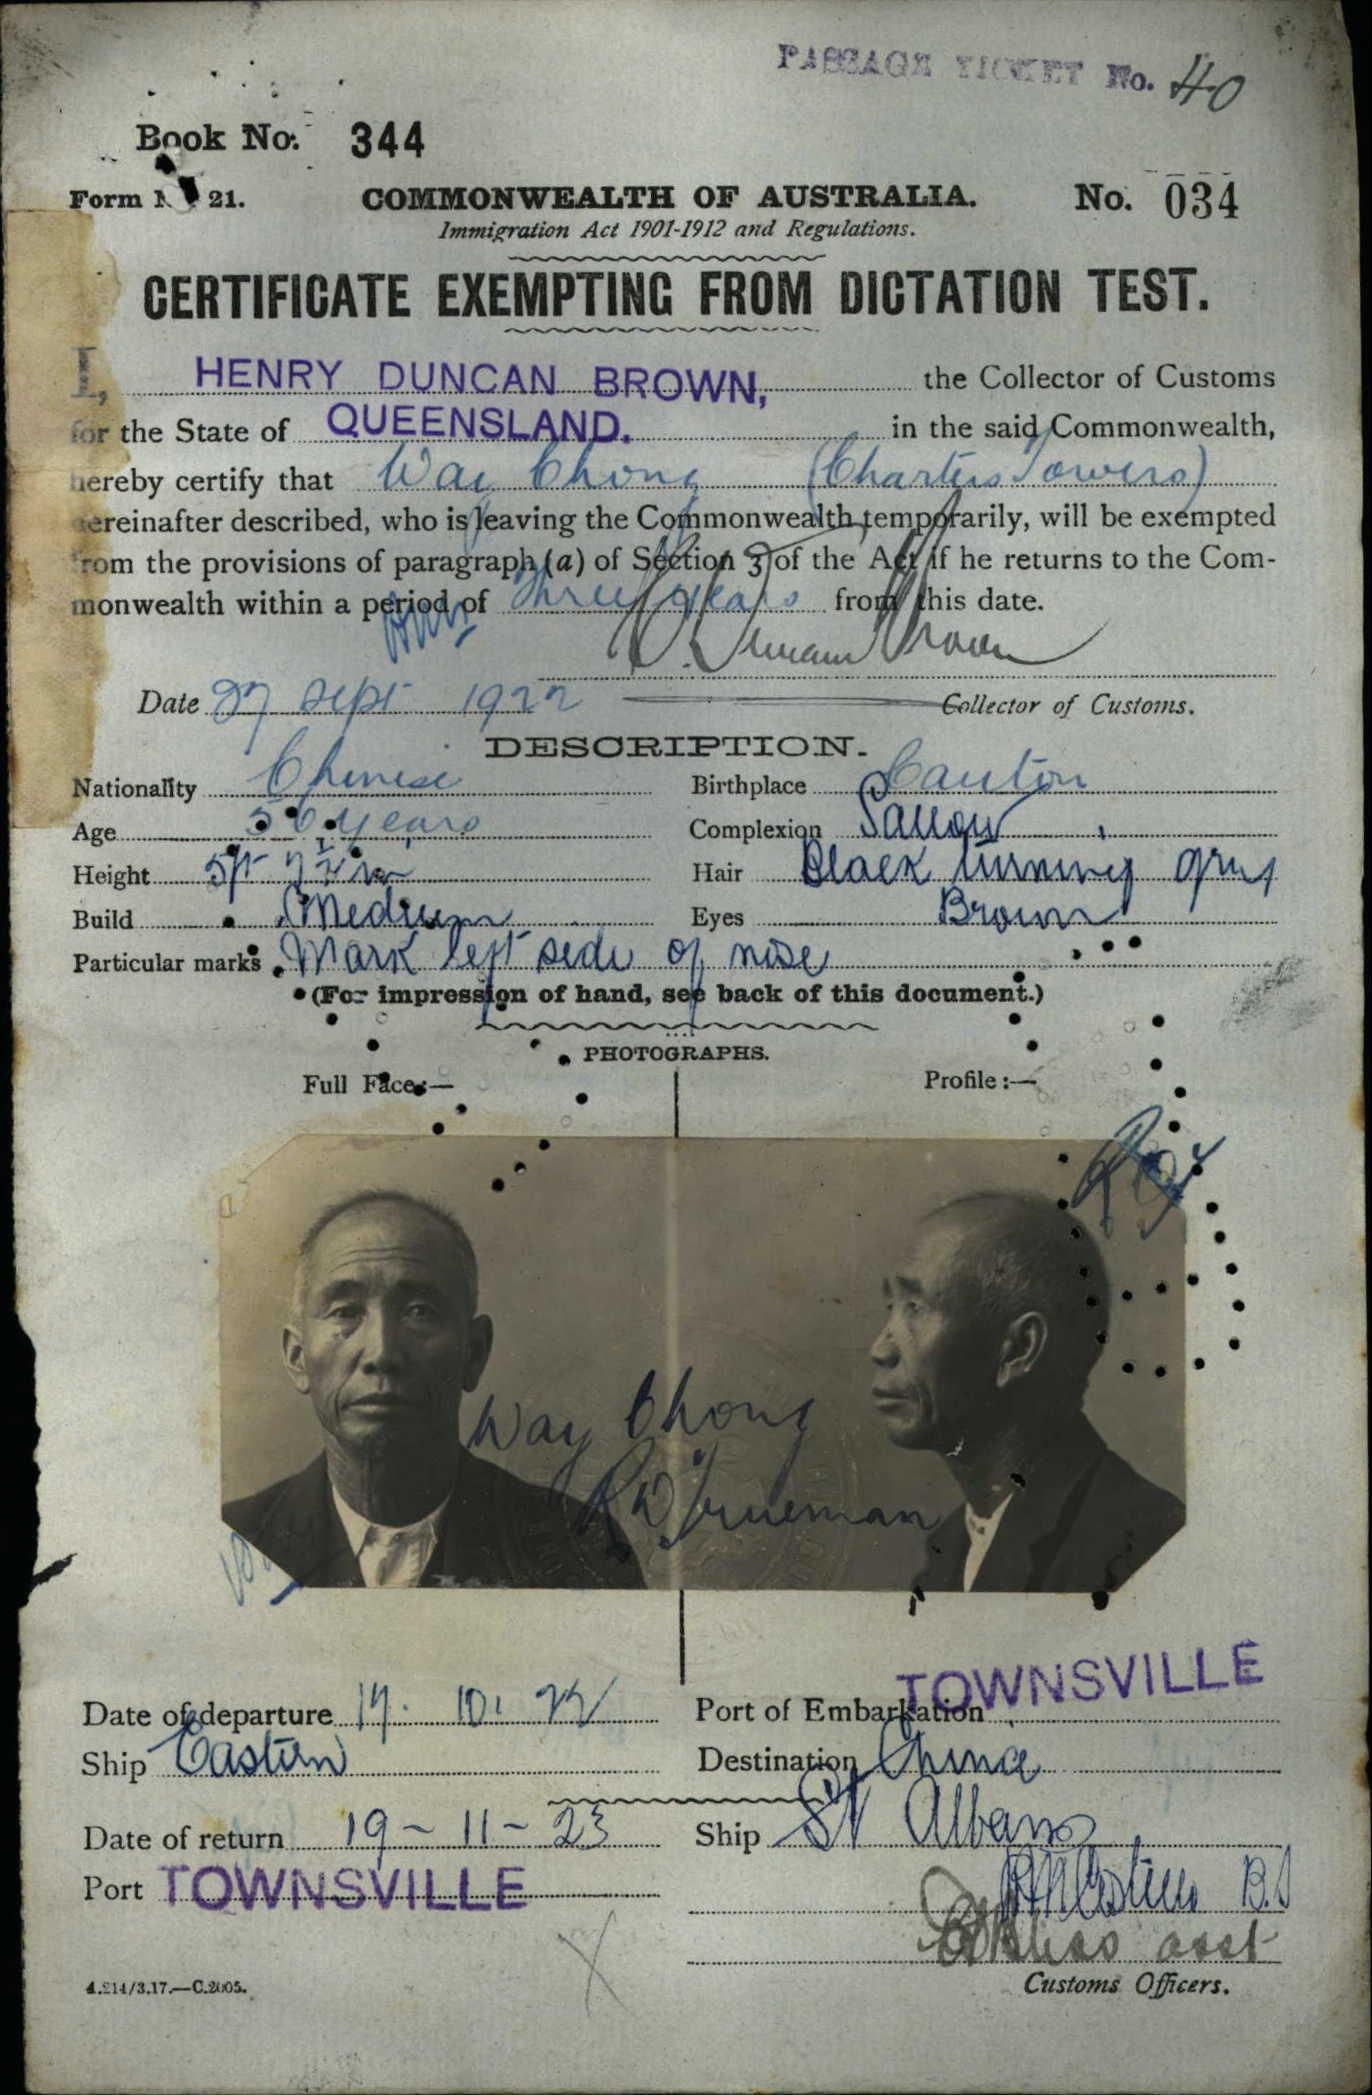 PASSAGE TICKET No. 40
Book No. 344
Form No. 21. COMMONWEALTH OF AUSTRALIA. No. 034
Immigration Act 1901-1912 and Regulations.
CERTIFICATE EXEMPTING FROM DICTATION TEST.
I, HENRY DUNCAN BROWN, the Collector of Customs
for the State of QUEENSLAND. in the said Commonwealth,
hereby certify that Way Chong (Charters Towers)
hereinafter described, who is leaving the Commonwealth temporarily, will be exempted
from the provisions of paragraph (a) of Section 3 of the Act if he returns to the Com-
monwealth within a period of Three years from this date.
H. Duncan Brown
Date 27 Sept 1922 Collector of Customs.
DESCRIPTION.
Nationality Chinese Birthplace Canton
Age 56 years Complexion Sallow
Height 5ft 7½in Hair Black turning grey
Build Medium Eyes Brown
Particular marks Mark left side of nose
(For impression of hand, see back of this document.)
PHOTOGRAPHS.
Full Face:— Profile:—
Way Chong
R W Trueman
Date of departure 17. 10. 22 Port of Embarkation TOWNSVILLE
Ship Eastern Destination China
Date of return 19-11-23 Ship St Albans
Port TOWNSVILLE
B.I
asst
4.214/3.17.—C.2005. Customs Officers.